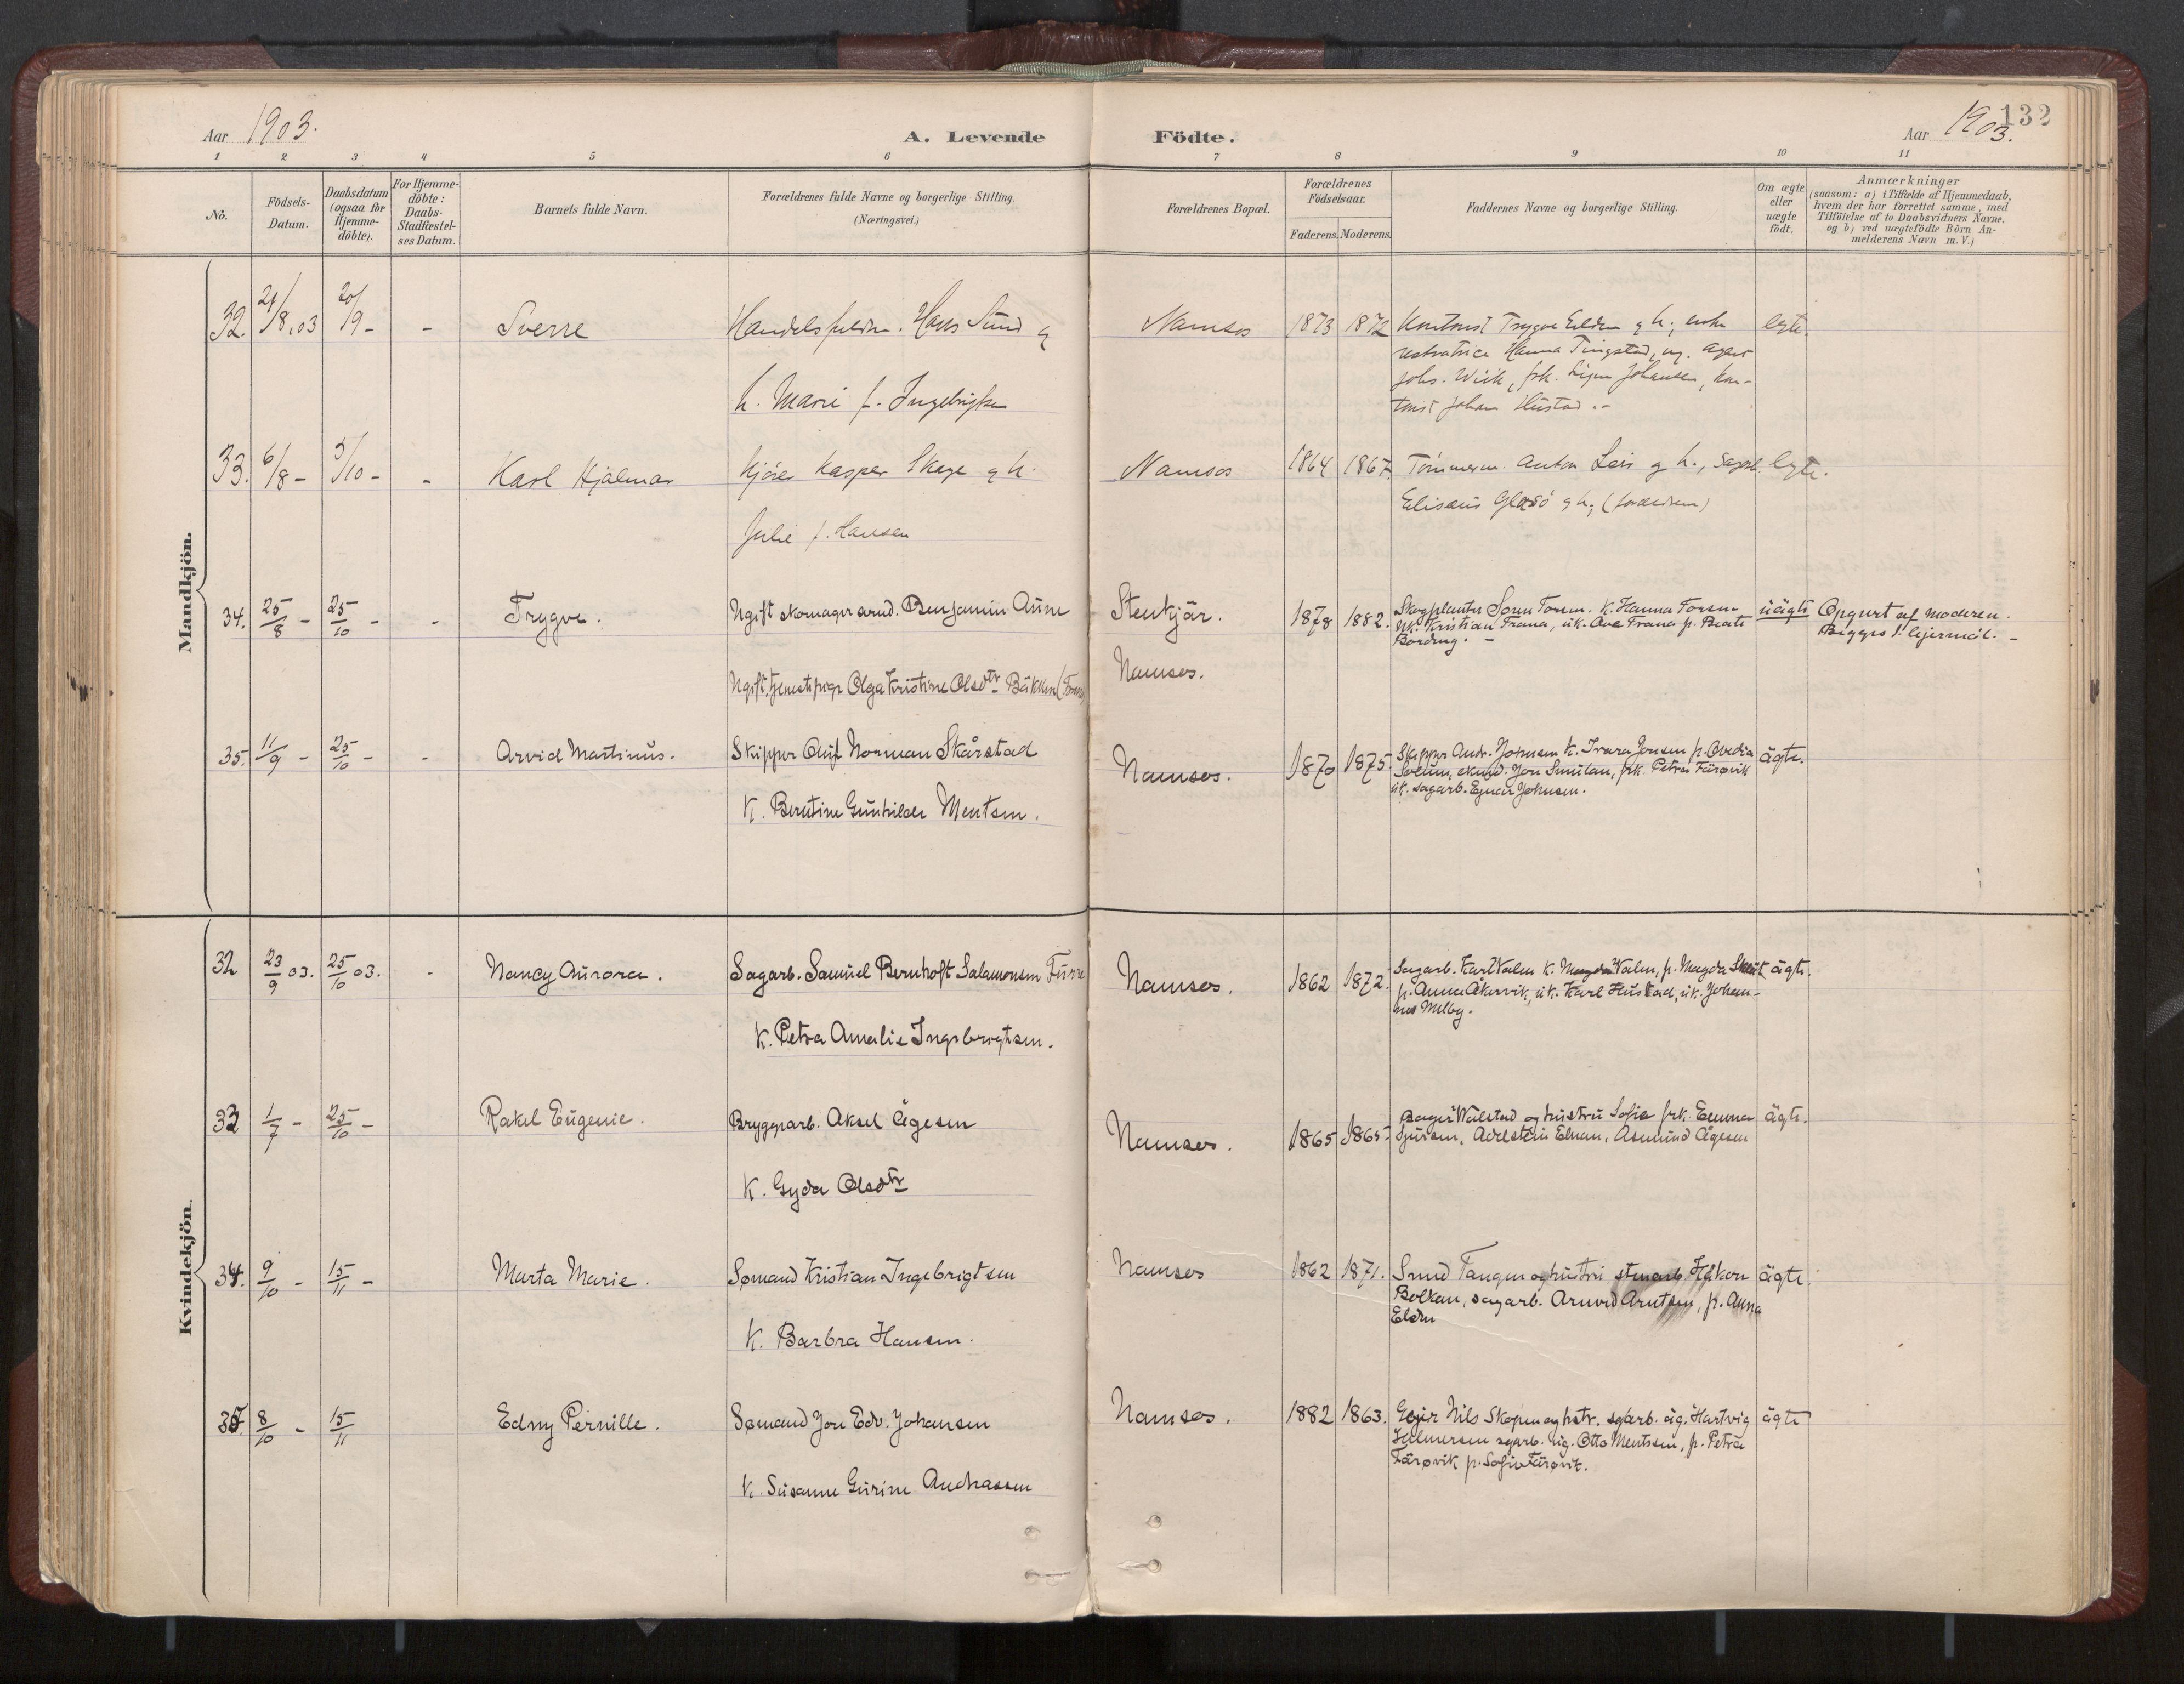 Aar 1903.
A. Levende
Födte.
Aar 1903.
132
1 2 3 4 5 6 7 8 9 10 11
No.
Födsels-Datum.
Daabsdatum (ogsaa for Hjemme-döbte).
For Hjemme-döbte: Daabs-Stadfæstel-ses Datum.
Barnets fulde Navn.
Forældrenes fulde Navne og borgerlige Stilling.
(Næringsvei.)
Forældrenes Bopæl.
Forældrenes Födselsaar.
Faderens. Moderens.
Faddernes Navne og borgerlige Stilling.
Om ægte eller uægte födt.
Anmærkninger
(saasom: a) i Tilfælde af Hjemmedaab,
hvem der har forrettet samme, med
Tilföielse af to Daabsvidners Navne,
og b) ved uægtefödte Börn An-
melderens Navn m. V.)
Mandkjön.
32. 21/8.03 20/9 - - Sverre
Hans Sund og
h. Marie f. Ingebrigtsen
Namsos 1873 1872
Hanna Tingstad, ug. agent
Johs. Wiik, frk. Johansen, kon-
torist Johan Hustad.-
33. 6/8 - 5/10 - - Karl Hjalmar
Kjörer Kasper Skage og h.
Julie f. Hansen
Namsos 1864 1867.
Tömmerm. Anton Leir og h., Sagarb.
Elisæus Glasö og h; (forældrene)
ægte.
34. 25/8 - 25/10 - - Trygve.
Ugift skomagersvend. Benjamin Aune
Ugift, tjenestepige Olga Kristine Olsdtr Bäkken
Stenkjär.
Namsos.
1878 1882.
Kristian Trana, uk. Ove Trana p. Beate
uägte
Opgivet af moderen.
Begges 1. lejermål. -
35. 11/9 - 25/10 - - Arvid Martinus.
Skipper Oluf Norman Skårstad
K. Berntine Gunhilde Mentsen.
Namsos.
1870 1875.
Skipper Andr. Johnsen K. Ivara Jonsen p. Ovedia
Solum, Jon Smulan, frk. Petra Färøvik
uk. sagarb. Ejnar Johnsen.
ägte.
Kvindekjön.
32 23/9 03. 25/10 03. - Nancy Aurora.
Sagarb. Samuel Bernhoft Salamonsen Furre
K. Petra Amalie Ingebrigtsen.
Namsos. 1862 1872.
Sagarb. Karl Valen K. Magda Valen, p. Magda
p. Anna Åkervik, uk. Karl Hustad, uk. Johan-
nes Melby.
ägte.
33 1/7 - 25/10 - Rakel Eugenie.
Bryggarb. Aksel Ågesen
K. Gyda Olsdtr
Namsos. 1865 1865.
Bager Walstad og hustru Sofie frk. Emma
Sjursen, Adelstein Elnan, Asmund Ågesen
ägte.
34. 9/10 - 15/11 - Marta Marie.
Sømand Kristian Ingebrigtsen
K. Barbra Hansen.
Namsos 1862 1871.
Smed Tangen og hustru stenarb. Håkon
Bolkan, sagarb. Arnvid Arntsen, p. Anna
Elden
ägte.
35. 8/10 - 15/11 Edny Pernille.
Sømand Jon Edv. Johansen
K. Susanne Gurine Andreassen
Namsos. 1882 1863.
Ejer Nils Skogmo og hstr. sgarb. ug. Hartvig
Hilmersen sgarb. ug. Otto Mentssen, p. Petra
Färøvik p. Sofie Färøvik.
ägte